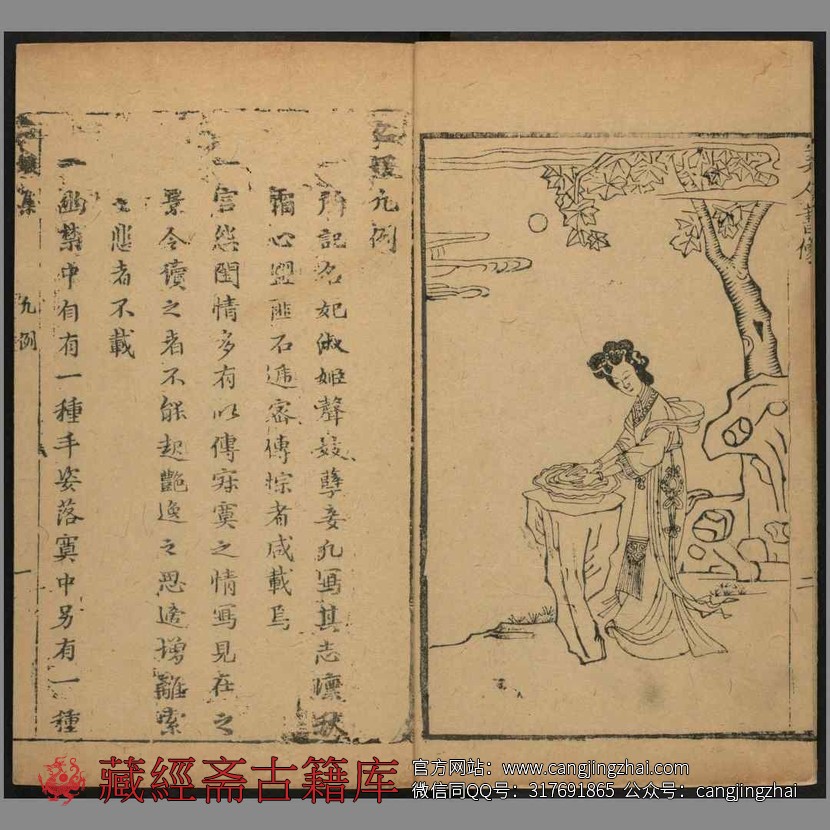 名媛凡例
所記名妃淑姬聲妓孽妾凡寫其志凜秋
霜心盟匪石遞密傳悰者咸載焉
一宮怨閨情多有以傳寂寞之情寫見在之
景令讀之者不能起艷逸之思適增離索
之悲者不載
一幽禁中自有一種手姿落寞中另有一種
集
凡例
一
藏經斋古籍库
官方网站：www.cangjingzhai.com
微信同QQ号：317691865 公众号：cangjingzhai